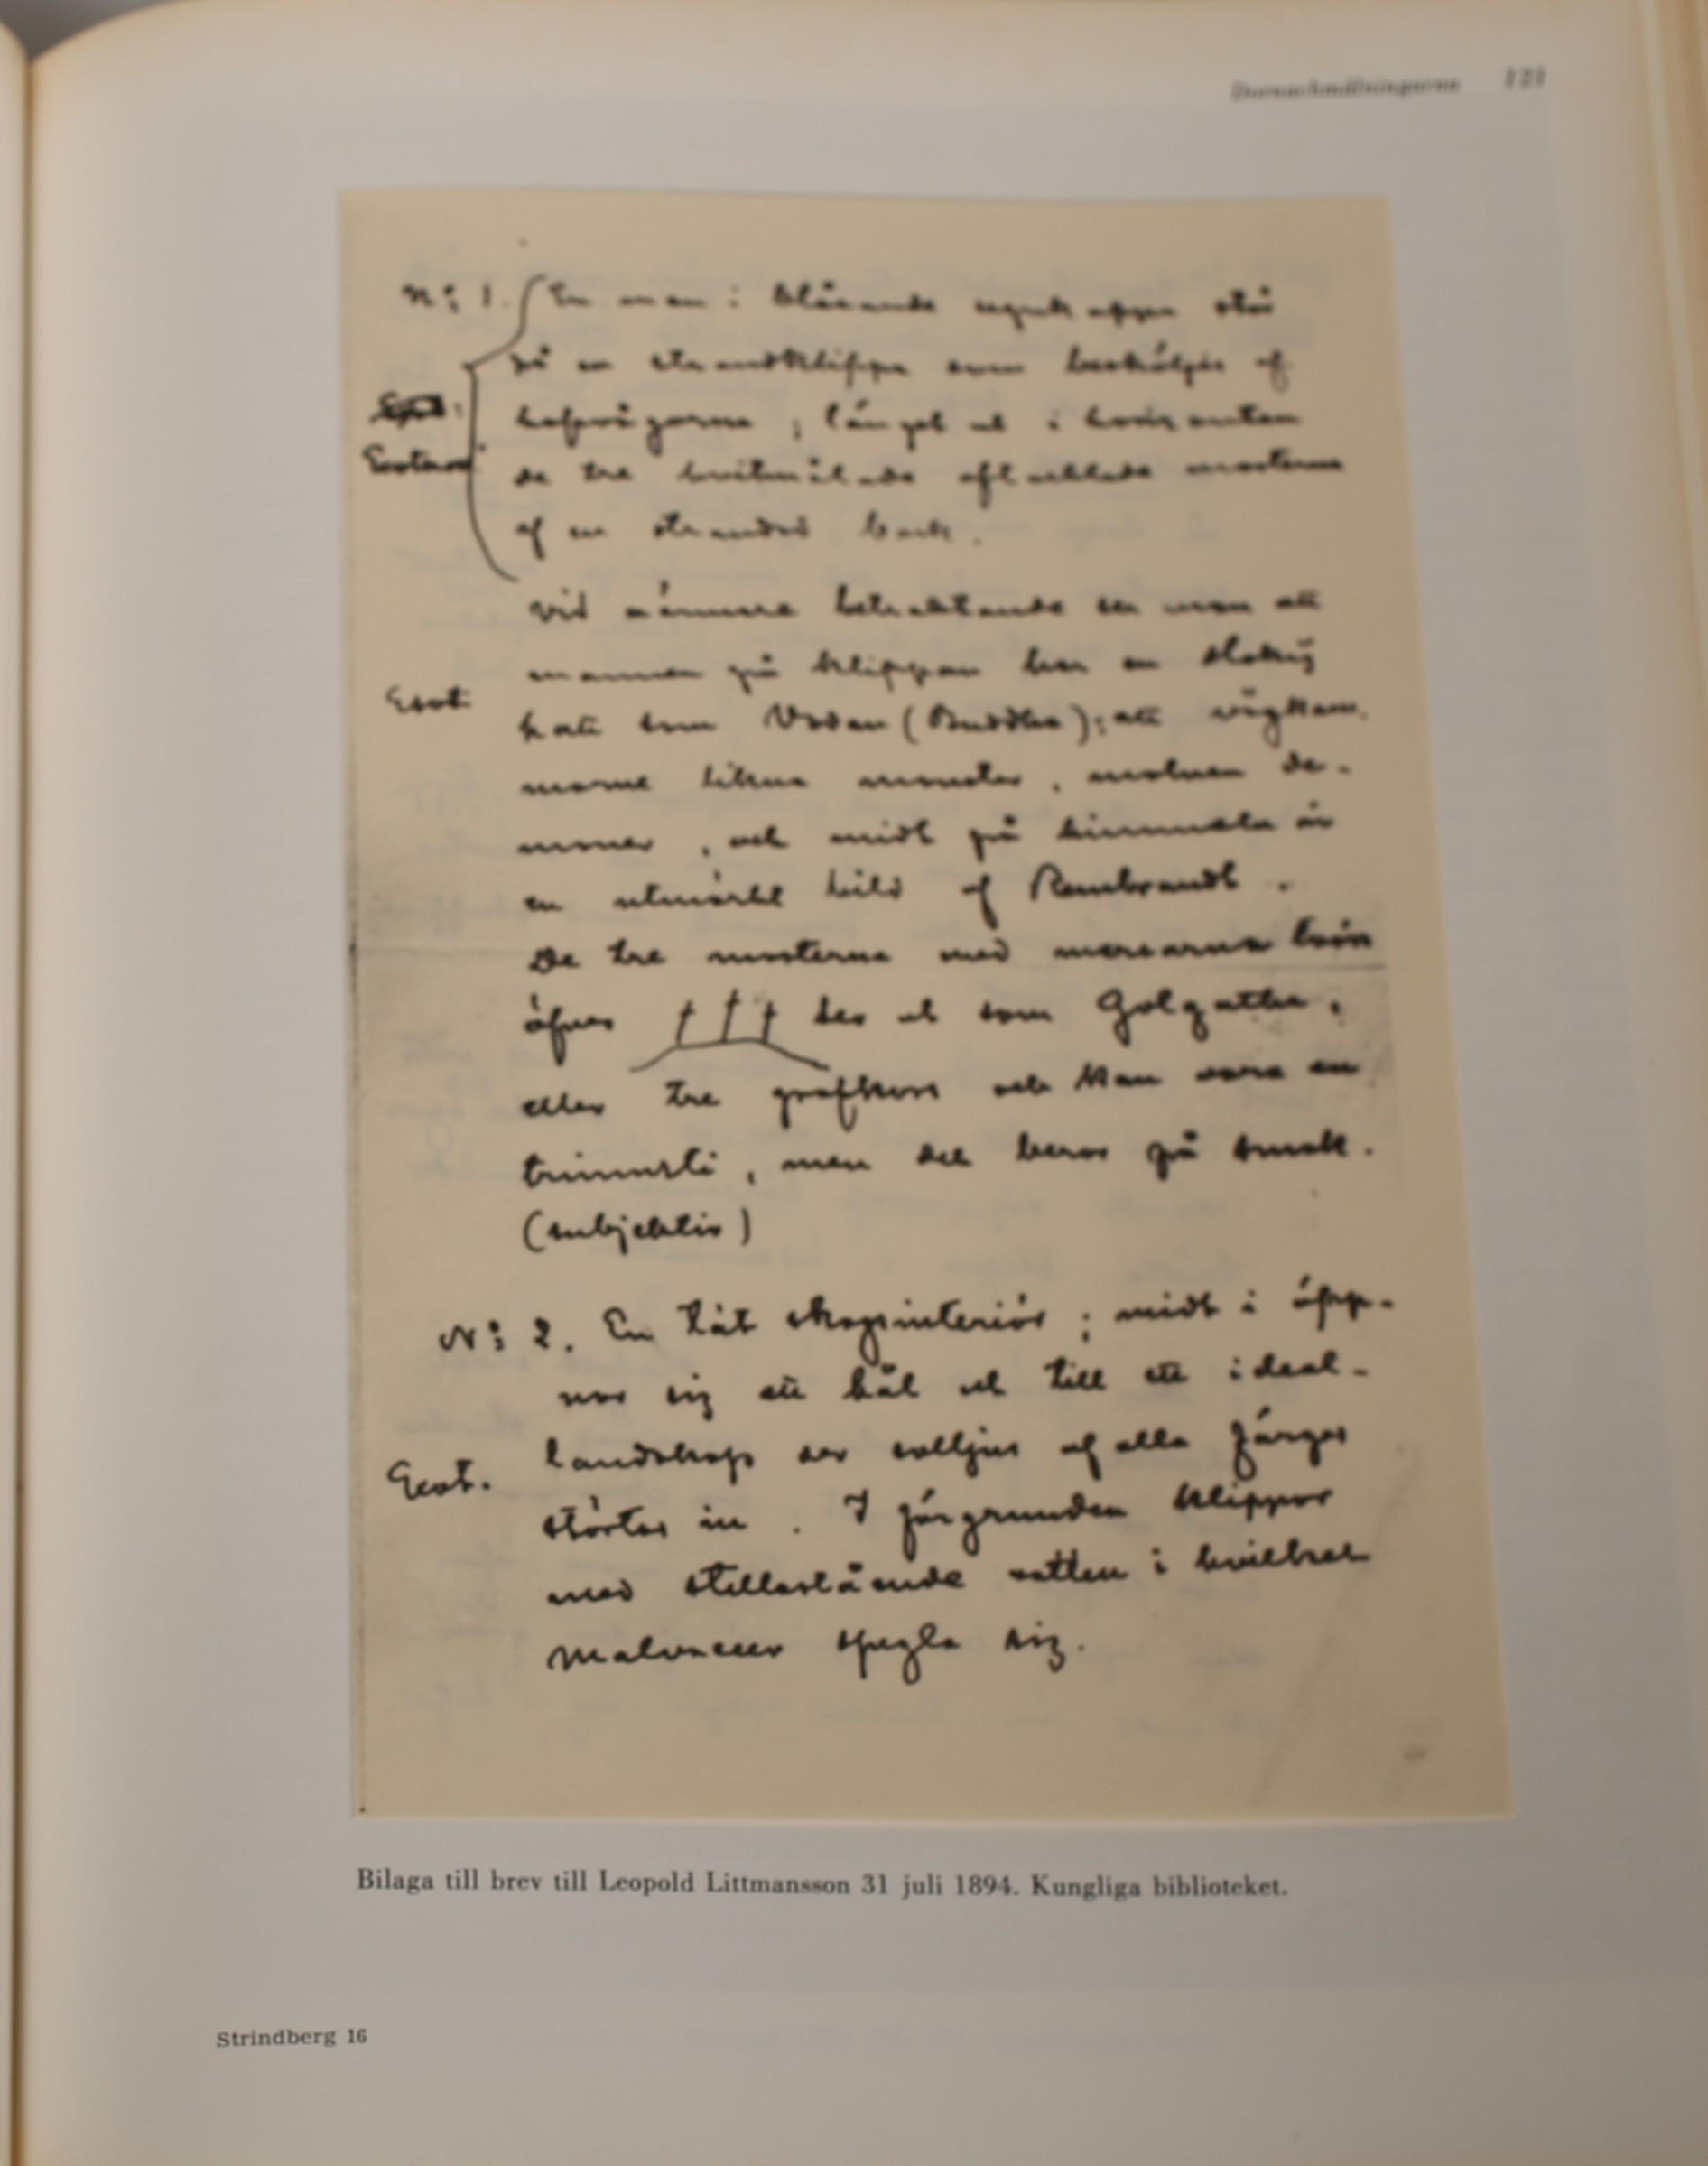 Dornachmålningarna 121
N:o 1. En man i blåsande regnkappa står
på en strandklippa som besköljes af
hafsvågorna; längst ut i horizonten
Exoter:
de tre hvitmålade aftacklade masterna
af en strandad bark.
Vid närmare betraktande ser man att
mannen på klippan har en slokig
Esot.
hatt som Vodan (Buddha); att vågkam-
marne likna monster, molnen de-
moner, och midt på himmeln är
en utmärkt bild af Rembrandt.
De tre masterna med
öfver ser ut som Golgatha,
eller tre grafkors och kan vara en
trimurti, men det beror på smak.
(subjektiv)
N:o 2. En tät skogsinteriör; midt i öpp-
nar sig ett hål ut till ett ideal-
landskap der solljus af alla färger
Exot.
störtar in. I förgrunden klippor
med stillastående vatten i hvilket
Malvaceer spegla sig.
Bilaga till brev till Leopold Littmansson 31 juli 1894. Kungliga biblioteket.
Strindberg 16